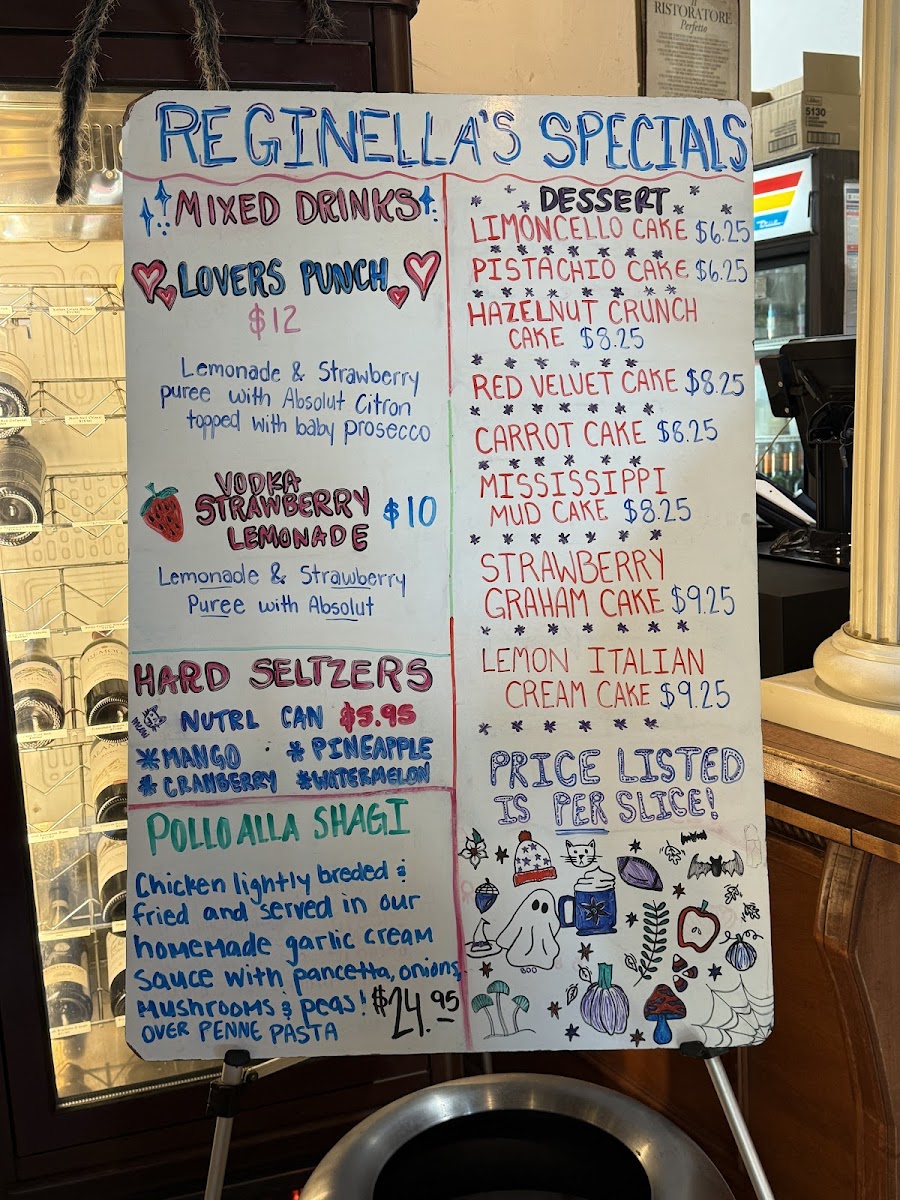 RISTORATORE
Perfetto
5130
REGINELLA'S SPECIALS
MIXED DRINKS
LOVERS PUNCH
$12
Lemonade & Strawberry
puree with Absolut Citron
topped with baby prosecco
VODKA
STRAWBERRY
LEMONADE
$10
Lemonade & Strawberry
Puree with Absolut
HARD SELTZERS
NUTRL CAN $5.95
*MANGO * PINEAPPLE
* CRANBERRY *WATERMELON
POLLO ALLA SHAGI
Chicken lightly breded &
fried and served in our
homemade garlic cream
sauce with pancetta, onions,
MUSHROOMS & peas! $24.95
OVER PENNE PASTA
DESSERT
LIMONCELLO CAKE $6.25
PISTACHIO CAKE $6.25
HAZELNUT CRUNCH
CAKE $8.25
RED VELVET CAKE $8.25
CARROT CAKE $8.25
MISSISSIPPI
MUD CAKE $8.25
STRAWBERRY
GRAHAM CAKE $9.25
LEMON ITALIAN
CREAM CAKE $9.25
PRICE LISTED
IS PER SLICE!